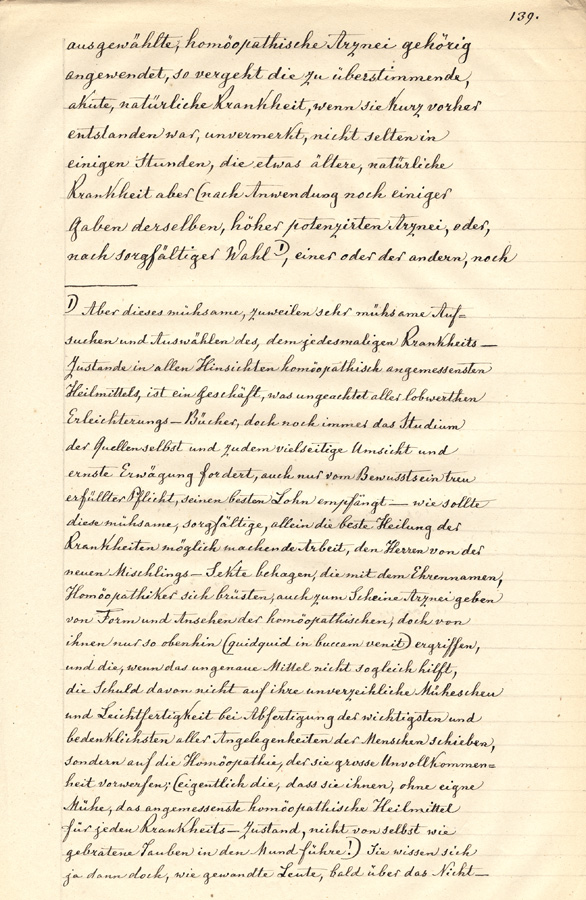 139.
ausgewählte, homöopathische Arznei gehörig
angewendet, so vergeht die zu überstimmende,
akute, natürliche Krankheit, wenn sie kurz vorher
entstanden war, unvermerkt, nicht selten in
einigen Stunden, die etwas ältere, natürliche
Krankheit aber (nach Anwendung noch einiger
Gaben derselben, höher potenzirten Arznei, oder,
nach sorgfältiger Wahl 1), einer oder der andern, noch
1) Aber dieses mühsame, zuweilen sehr mühsame Auf=
suchen und Auswählen des, dem jedesmaligen Krankheits—
Zustande in allen Hinsichten homöopathisch angemessensten
Heilmittels, ist ein Geschäft, was ungeachtet aller lobwerthen
Erleichterungs—Bücher, doch noch immer das Studium
der Quellen selbst und zudem vielseitige Umsicht und
ernste Erwägung fordert, auch nur vom Bewusstsein treu
erfüllter Pflicht, seinen besten Lohn empfängt — wie sollte
diese mühsame, sorgfältige, allein die beste Heilung der
Krankheiten möglich machende Arbeit, den Herren von der
neuen Mischlings—Sekte behagen, die mit dem Ehrennamen,
Homöopathiker sich brüsten, auch zum Scheine Arznei geben
von Form und Ansehen der homöopathischen, doch von
ihnen nur so obenhin (quidquid in buccam venit) ergriffen,
und die, wenn das ungenaue Mittel nicht sogleich hilft,
die Schuld davon nicht auf ihre unverzeihliche Mühescheu
und Leichtfertigkeit bei Abfertigung der wichtigsten und
bedenklichsten aller Angelegenheiten der Menschen schieben,
sondern auf die Homöopathie, der sie grosse Unvollkommen=
heit vorwerfen; (eigentlich die, dass sie ihnen, ohne eigne
Mühe, das angemessenste homöopathische Heilmittel
für jeden Krankheits—Zustand, nicht von selbst wie
gebratene Tauben in den Mund führe!) Sie wissen sich
ja dann doch, wie gewandte Leute, bald über das Nicht—